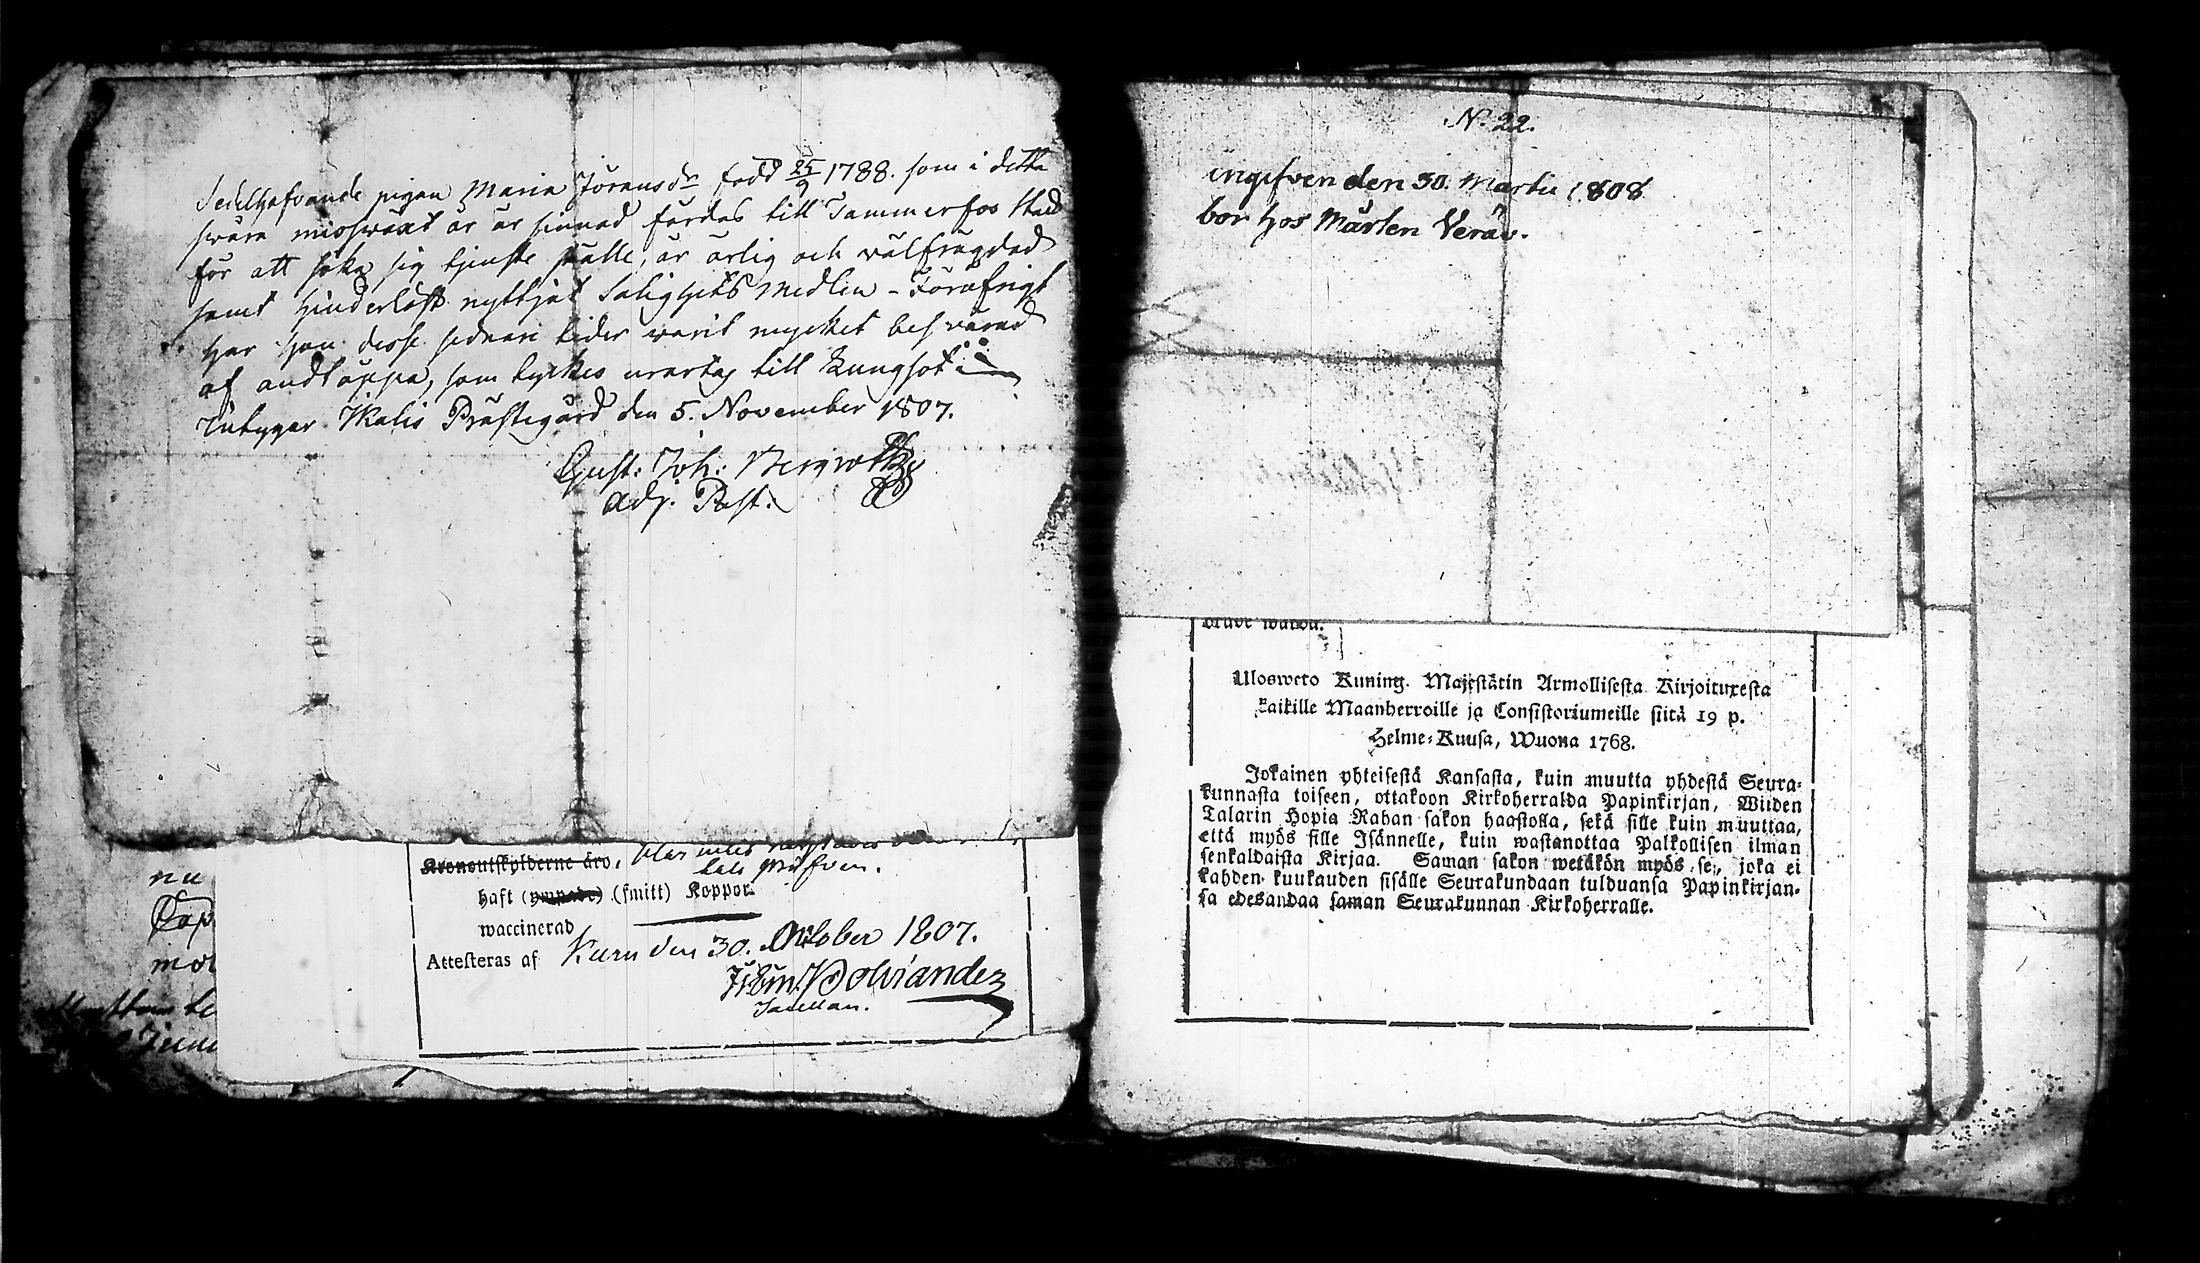 Sedelhafvande pigan Maria Joransdr född 25/9 1788. som i detta
svåra missväxt år är sinnad färdas till Tammerfos Stad
för att söka sig tjenste ställe, är ärlig och välfrägdad
samt hinderlöst nyttjat Salighets Medlen - Föröfrigt
har hon desse sednare tider varit mycket besvärad
af andtäppa, som tyckes urarta till Lungsot
Intygar Ikalis Prästegård den 5. November 1807.
Gust: Joh: Bergroth
Adj. Past.
nu
Cap
mot
Kronoutskylderne äro,
haft (ympade) (smitt) Koppor.
waccinerad
Attesteras af Kuru den 30. October 1807.
Sacellan.
N. 22.
ingifven den 30. Martii 1808
bor hos Mårten
Ulosweto Kuning. Majestätin Armollisesta Kirjoituxesta
kaikille Maanherroille ja Consistoriumeille siitä 19 p.
Helme-Kuusa, Wuona 1768.
Jokainen yhteisestä Kansasta, kuin muutta yhdestä Seura-
kunnasta toiseen, ottakoon Kirkoherralda Papinkirjan, Wiiden
Talarin Hopia Rahan sakon haastolla, sekä sille kuin muuttaa,
että myös sille Isännelle, kuin wastanottaa Palkollisen ilman
senkaldaista Kirjaa. Saman sakon wetäkön myös se, joka ei
kahden kuukauden sisälle Seurakundaan tulduansa Papinkirjan-
sa edesandaa saman Seurakunnan Kirkoherralle.